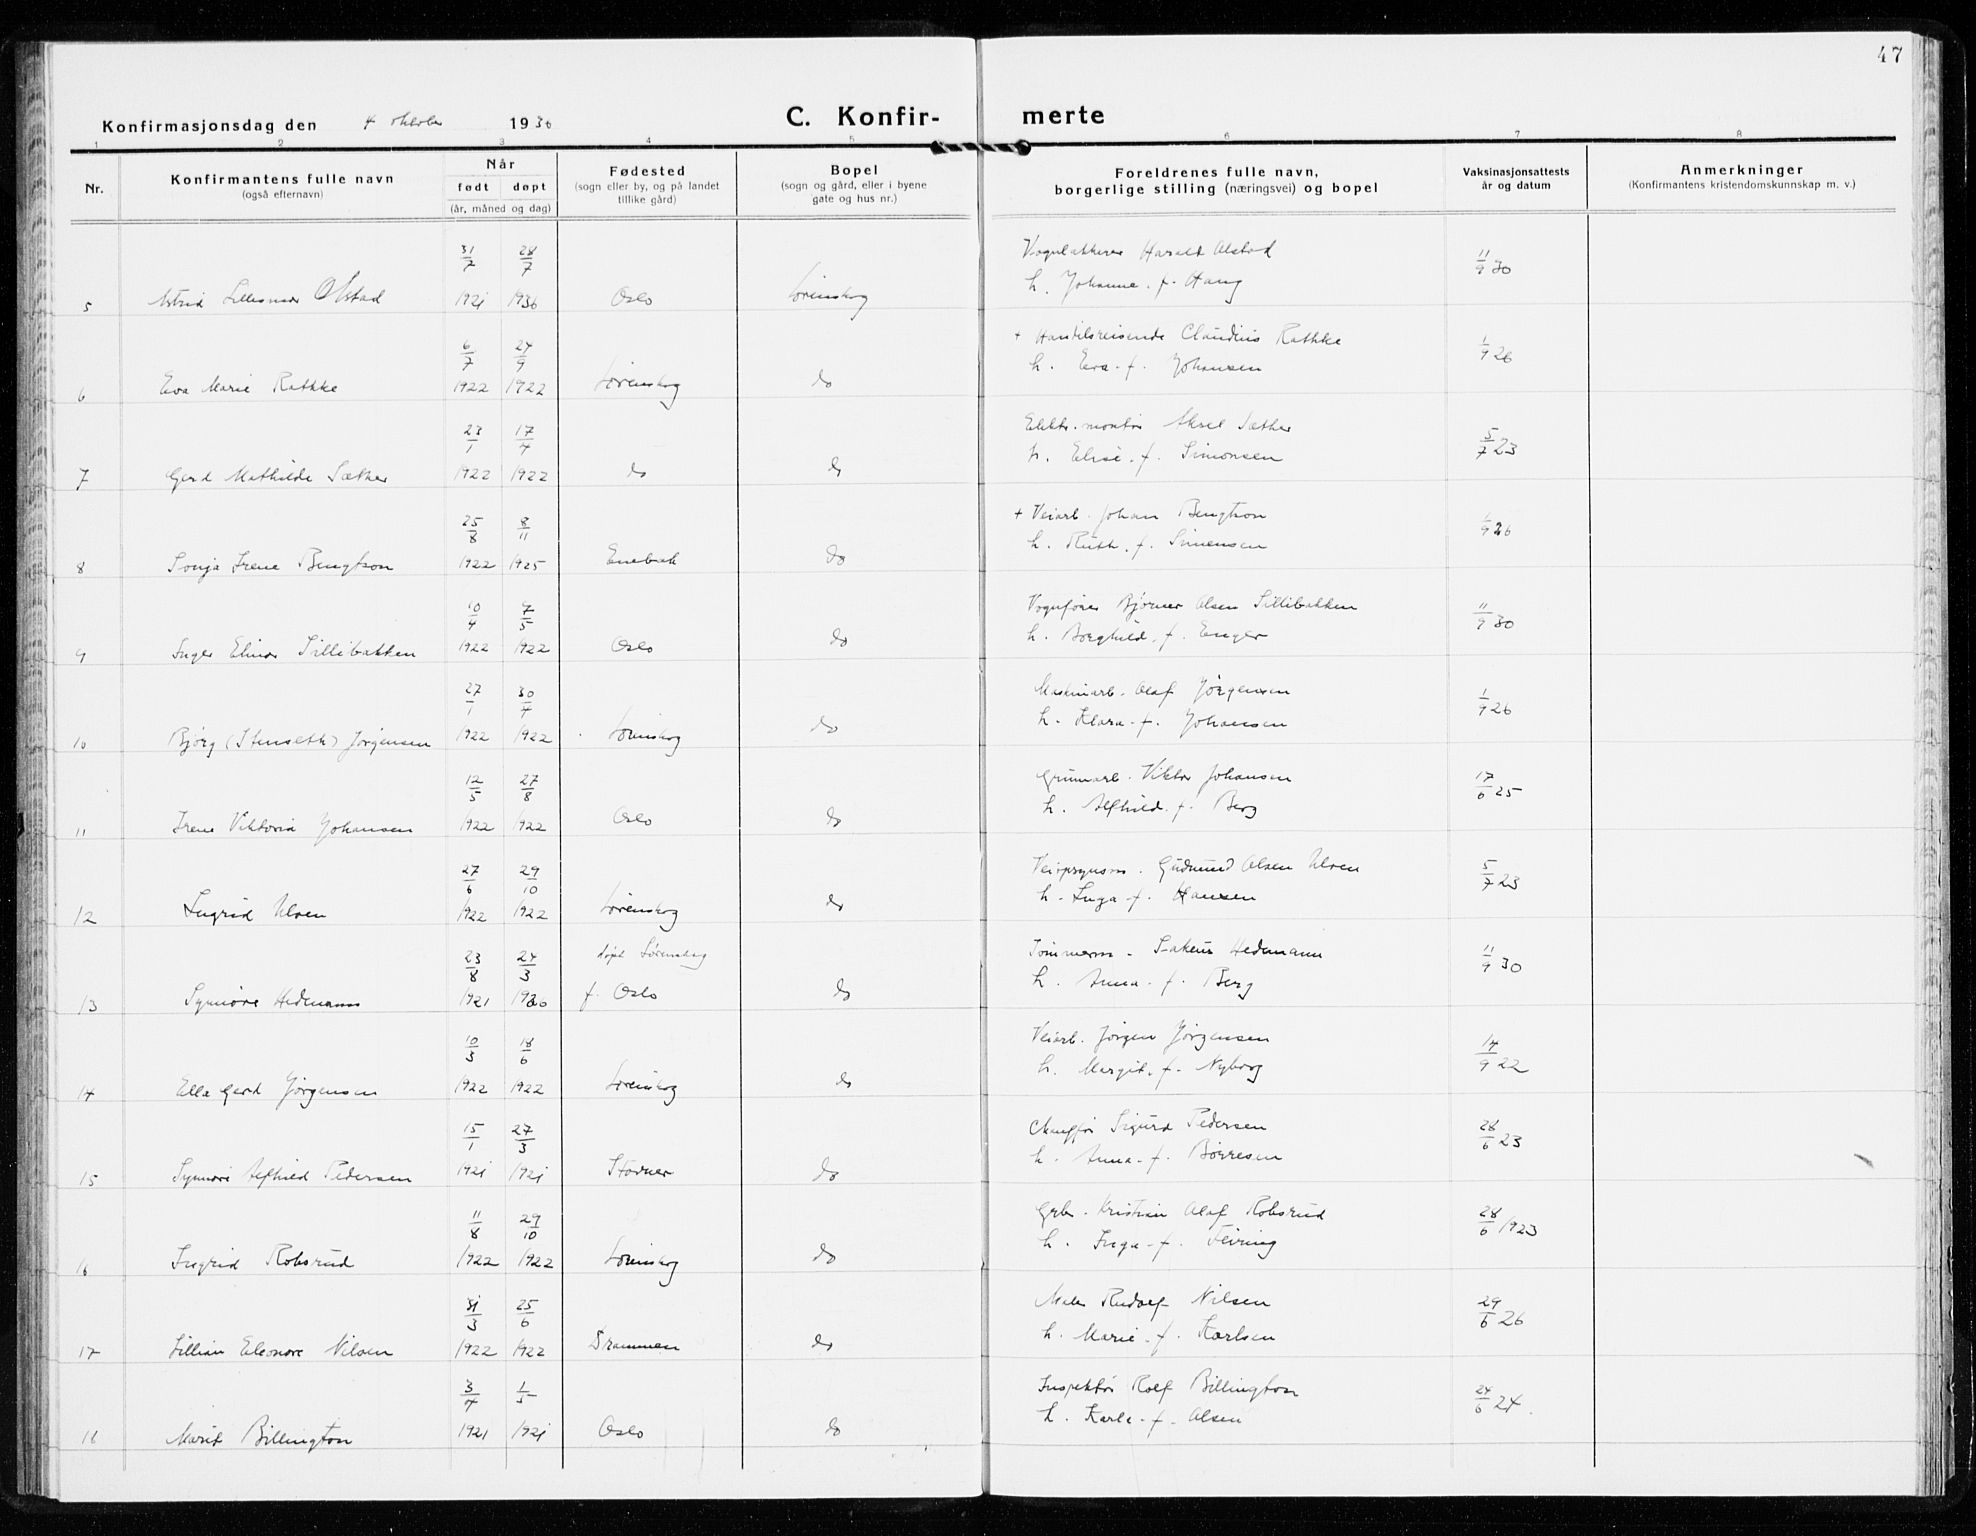 47
Konfirmasjonsdag den 4 oktober 1936
C. Konfir- merte
1 2 3 4 5 6 7 8
Nr.
Konfirmantens fulle navn
(også efternavn)
Når
født døpt
(år, måned og dag)
Fødested
(sogn eller by, og på landet
tillike gård)
Bopel
(sogn og gård, eller i byene
gate og hus nr.)
Foreldrenes fulle navn,
borgerlige stilling (næringsvei) og bopel
Vaksinasjonsattests
år og datum
Anmerkninger
(Konfirmantens kristendomskunnskap m. v.)
31/7 28/7 Harald Olstad 11/9 30
5 Astrid Olstad 1921 1936 Oslo Lørenskog h. Johanne f. Haug
6/7 24/9 + Handelsreisende Claudius Rathke 1/9 26
6 Eva Marie Rathke 1922 1922 Lørenskog do h. Eva f. Johansen
23/1 17/4 Elektr. montør Aksel Sæther 5/7 23
7 Gerd Mathilde Sæther 1922 1922 do do h. Elise f. Simonsen
25/8 8/11 + Veiarb. Johan Bengtson 1/9 26
8 Sonja Irene Bengtson 1922 1925 Enebak do h. Ruth f. Simensen
10/4 7/5 Vognfører Bjørner Olsen Lillibakken 11/9 30
9 Inger Elinor Lillibakken 1922 1922 Oslo do h. Borghild f. Enger
27/1 30/4 Maskinarb. Olaf Jørgensen 1/9 26
10 Bjørg (Stenseth) Jørgensen 1922 1922 Lørenskog do h. Klara f. Johansen
12/5 27/8 Viktor Johansen 17/6 25
11 Irene Viktoria Johansen 1922 1922 Oslo do h. Alfhild f. Berg
27/6 29/10 Gudmund Olsen Ulven 5/7 23
12 Ingrid Ulven 1922 1922 Lørenskog do h. Inga f. Hansen
23/8 24/3 døpt Lørenskog Tømmerm. Hedemann 11/9 30
13 Synnøve Hedemann 1921 1930 f. Oslo do h. Anna f. Berg
10/3 18/6 Veiarb. Jørgen Jørgensen 14/9 22
14 Ella Gerd Jørgensen 1922 1922 Lørenskog do h. Margit f. Nyborg
15/1 27/3 Chauffør Sigurd Pedersen 28/6 23
15 Synnøve Alfhild Pedersen 1921 1921 Stovner do h. Anna f. Børresen
11/8 29/10 Grb. Kristian Olaf Robsrud 28/6 1923
16 Ingrid Robsrud 1922 1922 Lørenskog do h. Inga f. Feiring
31/3 25/6 Maler Rudolf Nilsen 29/6 26
17 Lillian Eleonore Nilsen 1922 1922 Drammen do h. Marie f. Karlsen
3/4 1/5 Inspektør Rolf Billington 24/6 24.
18 Marit Billington 1921 1921 Oslo do h. Karla f. Olsen